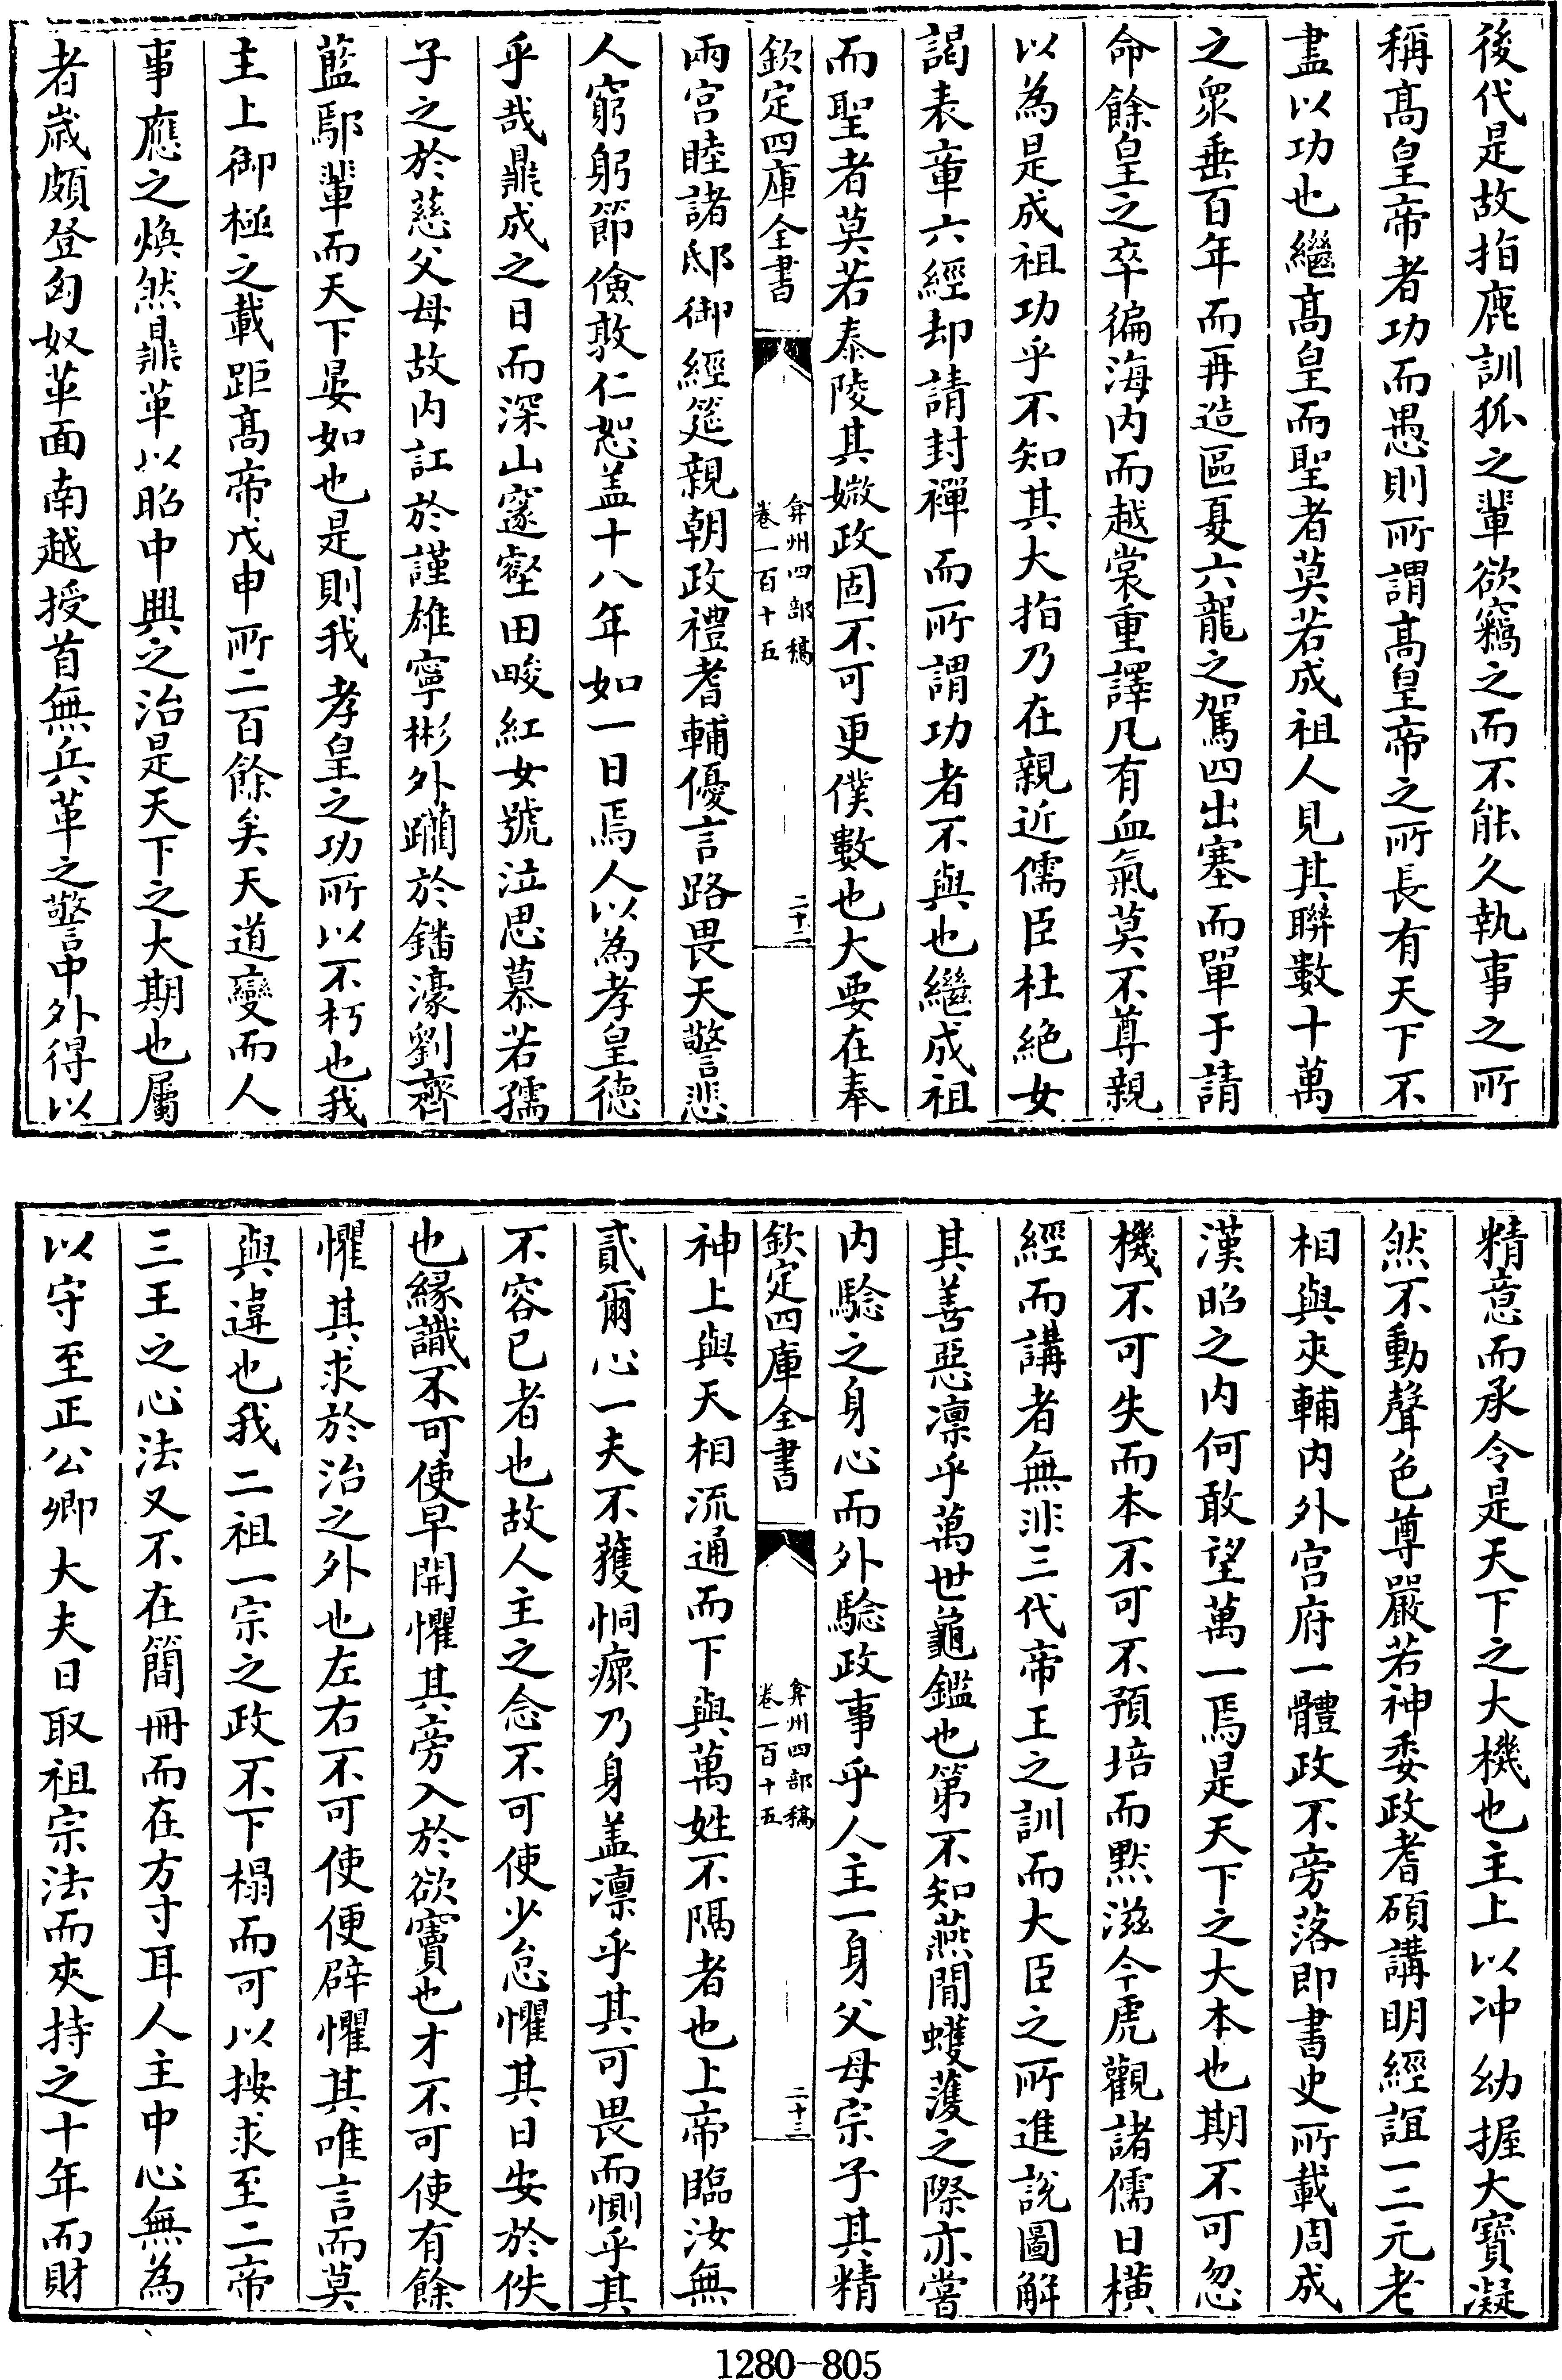 後代是故指鹿訓狐之輩欲竊之而不能久執事之所
稱髙皇帝者功而愚則所謂髙皇帝之所長有天下不
盡以功也繼髙皇而聖者莫若成祖人見其聨數十萬
之衆垂百年而再造區夏六龍之駕四出塞而單于請
命餘皇之卒徧海内而越裳重譯凡有血氣莫不尊親
以為是成祖功乎不知其大指乃在親近儒臣杜絶女
謁表章六經却請封禪而所謂功者不與也繼成祖
而聖者莫若泰陵其媺政固不可更僕數也大要在奉
欽定四庫全書
弇州四部稿
卷一百十五
二十二
兩宫睦諸邸御經筵親朝政禮耆輔優言路畏天警悲
人窮躬節儉敦仁恕盖十八年如一日焉人以為孝皇德
乎哉鼎成之日而深山窮壑田畯紅女號泣思慕若孺
子之於慈父母故内訌於謹雄寧彬外躪於鐇濠劉齊
藍鄢輩而天下晏如也是則我孝皇之功所以不朽也我
主上御極之載距髙帝戊申所二百餘矣天道變而人
事應之煥然鼎革以昭中興之治是天下之大期也屬
者嵗頗登匈奴革面南越授首無兵革之警中外得以
精意而承令是天下之大機也主上以冲幼握大寶凝
然不動聲色尊嚴若神委政耆碩講明經誼一二元老
相與夾輔内外宫府一體政不旁落即書史所載周成
漢昭之内何敢望萬一焉是天下之大本也期不可忽
機不可失而本不可不預培而黙滋今虎觀諸儒日横
經而講者無非三代帝王之訓而大臣之所進說圖解
其善惡凛乎萬世龜鑑也第不知燕閒蠖濩之際亦嘗
内驗之身心而外驗政事乎人主一身父母宗子其精
欽定四庫全書
弇州四部稿
卷一百十五
二十三
神上與天相流通而下與萬姓不隔者也上帝臨汝無
貳爾心一夫不獲恫瘝乃身盖凛乎其可畏而惻乎其
不容已者也故人主之念不可使少怠懼其日安於佚
也縁識不可使早開懼其旁入於欲竇也才不可使有餘
懼其求於治之外也左右不可使便辟懼其唯言而莫
與違也我二祖一宗之政不下榻而可以按求至二帝
三王之心法又不在簡冊而在方寸耳人主中心無為
以守至正公卿大夫日取祖宗法而夾持之十年而財
1280—805